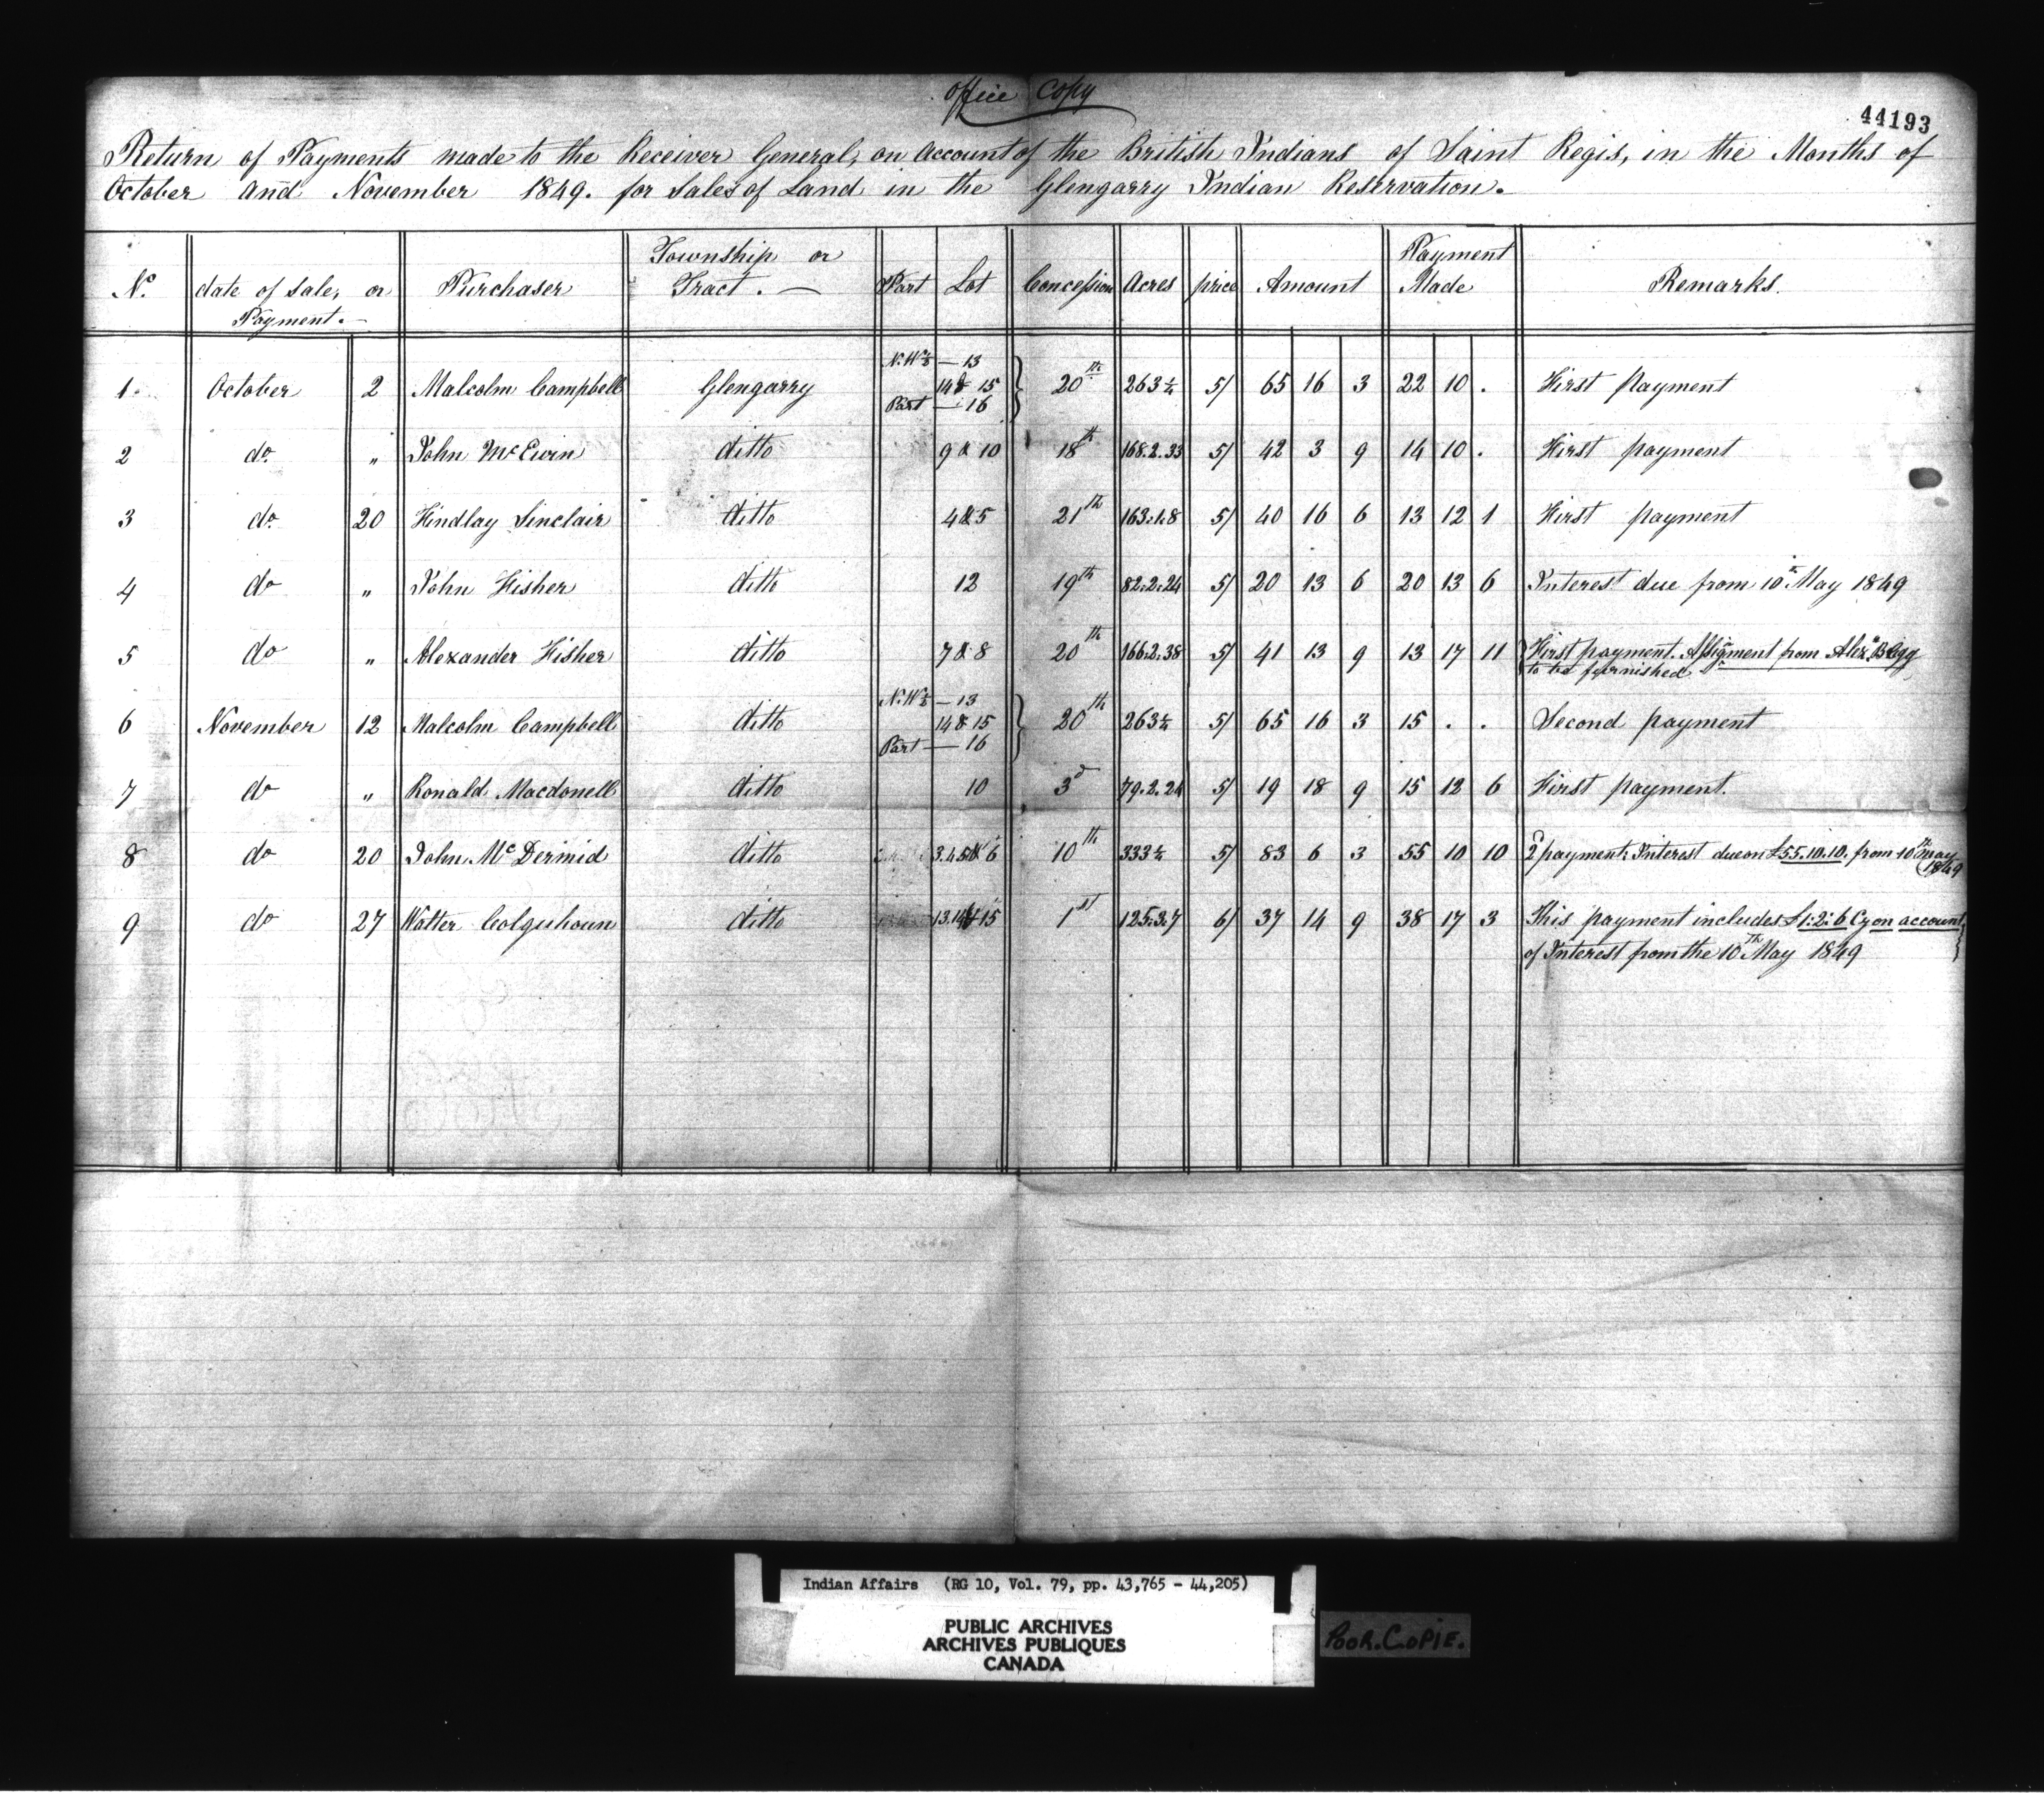 Office Copy
44193
Return of Payments made to the Receiver General, on Account of the British Indians of Saint Regis, in the Months of
October and November 1849. for Sales of Land in the Glengarry Indian Reservation.
No. date of sale, or Payment. Purchaser Township or Tract. Part Lot Concession Acres price Amount Payment Made Remarks.
N.W½ — 13
1 October 2 Malcolm Campbell Glengarry 14 & 15 20th 263¼ 5/ 65 16 3 22 10 . First payment
Part — 16
2 do " John McEwin ditto 9 & 10 18th 168.2.33 5/ 42 3 9 14 10 . First payment
3 do 20 Findlay Sinclair ditto 4 & 5 21th 163.1.8 5/ 40 16 6 13 12 1 First payment
4 do " John Fisher ditto 12 19th 82.2.24 5/ 20 13 6 20 13 6 Interest due from 10th May 1849
5 do " Alexander Fisher ditto 7 & 8 20th 166.2.38 5/ 41 13 9 13 17 11 First payment. Assignment from Alexr. Begg
to be furnished
N.W½ — 13
6 November 12 Malcolm Campbell ditto 14 & 15 20th 263¼ 5/ 65 16 3 15 . . Second payment
Part — 16
7 do " Ronald Macdonell ditto 10 3d 79.2.24 5/ 19 18 9 15 12 6 First payment.
8 do 20 John McDermid ditto 3.4.5 & 6 10th 333¼ 5/ 83 6 3 55 10 10 2 payment. Interest due on £55.10.10. from 10th May
1849
9 do 27 Walter Colquhoun ditto 13.14 & 15 1st 125.3.7 6/ 37 14 9 38 17 3 This payment includes £1:2:6 Cy on account
of Interest from the 10th May 1849
Indian Affairs (RG 10, Vol. 79, pp. 43,765 - 44,205)
PUBLIC ARCHIVES
ARCHIVES PUBLIQUES
CANADA
POOR.COPIE.